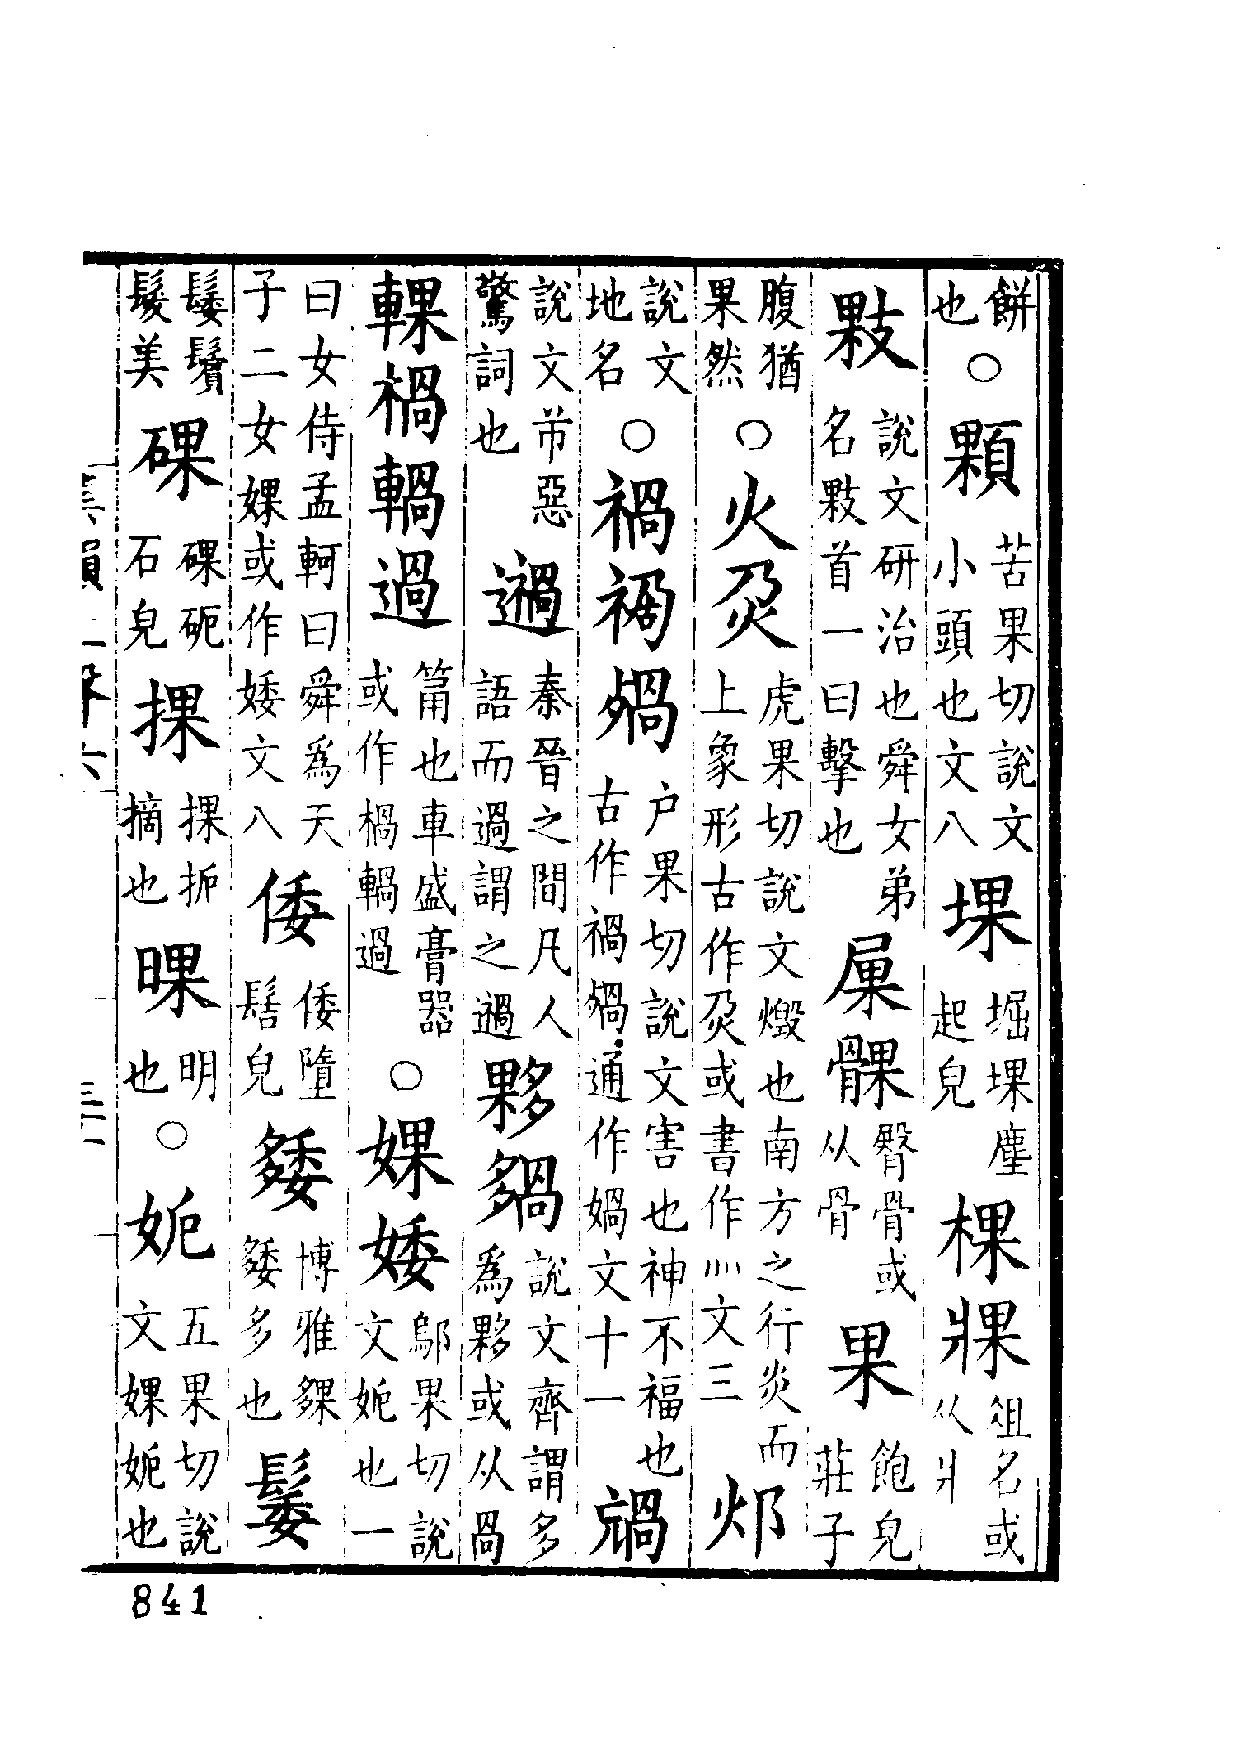 餅也○顆苦果切說文小頭也文八堁堀堁塵起皃棵俎名或从爿
敤說文研治也舜女弟名敤首一曰擊也髁臀骨或从骨果飽皃莊子
腹猶果然○火虎果切說文燬也南方之行炎而上象形古作或書作灬文三邩
說文地名○禍戶果切說文害也神不福也古作通作媧文十一
說文屰惡驚詞也秦晉之間凡人語而過謂之夥說文齊謂多爲夥或从咼
輠楇過筩也車盛膏器或作楇過○婐婑鄔果切說文婐㛂也一
曰女侍孟軻曰舜爲天子二女婐或作婑文八倭倭墮髻皃博雅多也
鬢髮美碨砈石皃捰捰扼摘也明也○㛂五果切說文婐㛂也
集韻上聲六
三十一
841